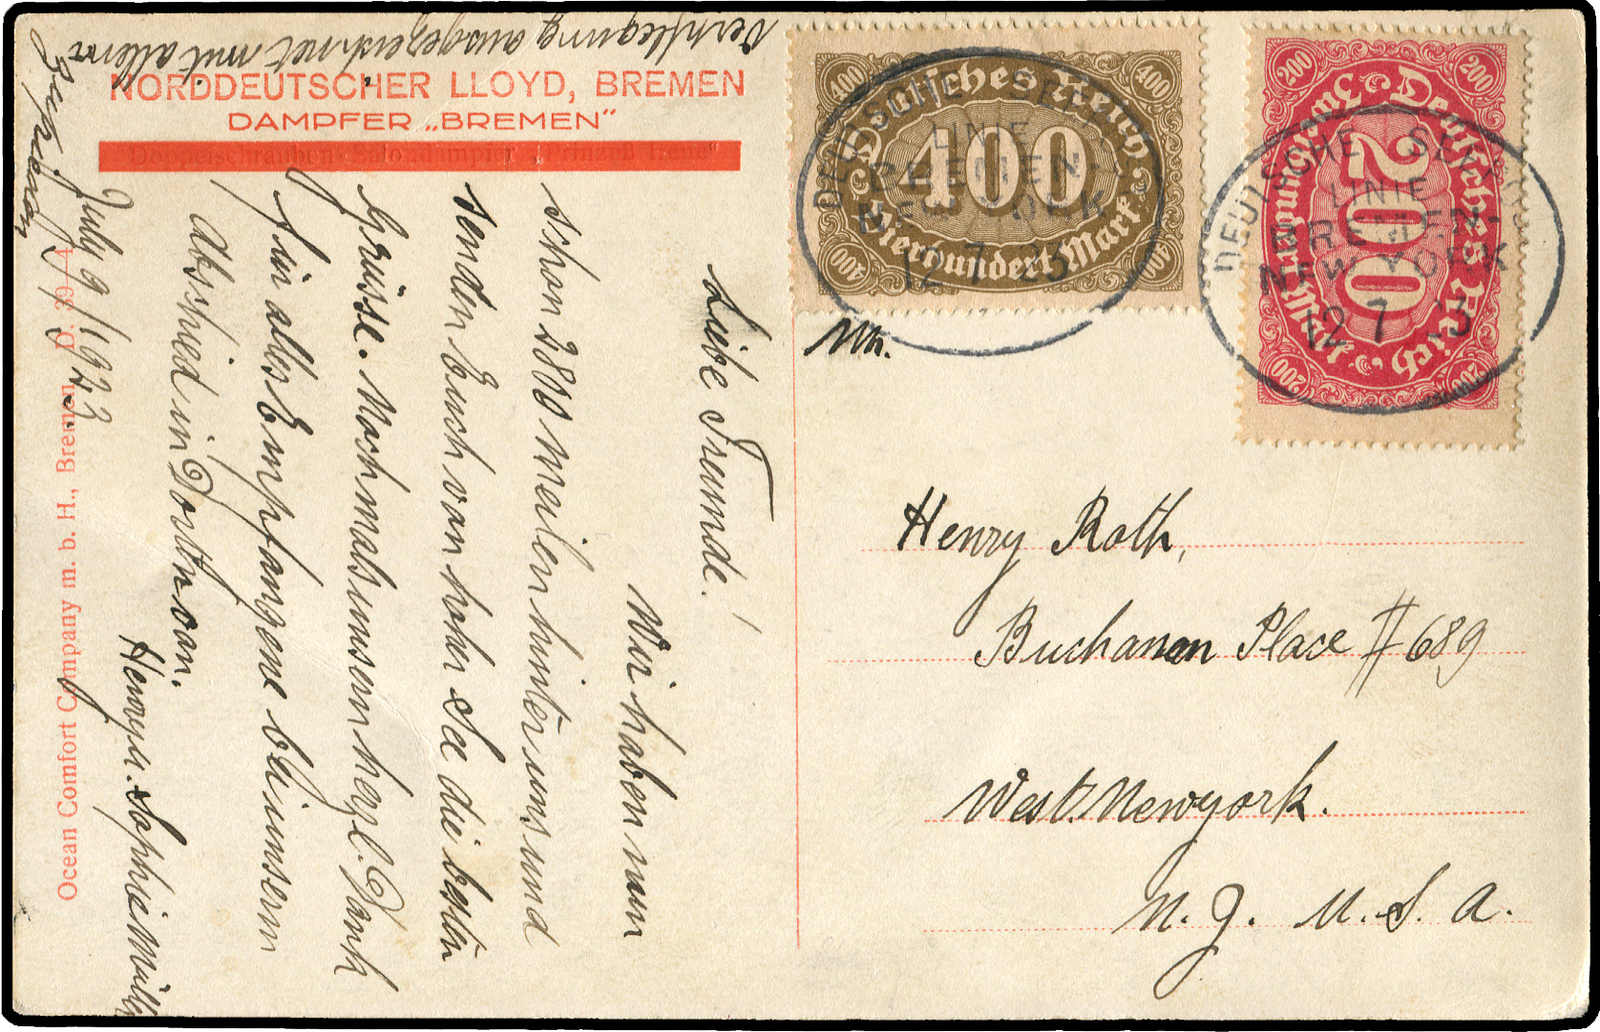 NORDDEUTSCHER LLOYD, BREMEN
DAMPFER „BREMEN"
Doppelschrauben-Salondampfer „Prinzeß Irene"
Ocean Comfort Company m. b. H., Bremen. D. 39 A
July 9/1923
Liebe Freunde!
Wir haben nun
schon 2800 meilen hinter uns und
senden Euch von hoher See die besten
Grüsse. Nochmals unsern herzl. Dank
für alles Empfangene bei unserm
Abschied in
Henry u. Sophie Müller
Verpflegung ausgezeichnet mit allem
400 400
Deutsches Reich
400
Vierhundert Mark
400 400
200 200
Deutsches Reich
200
Zweihundert Mark
200 200
DEUTSCHE SEEPOST
LINIE
BREMEN-
NEW YORK
12 7 23
DEUTSCHE SEEPOST
LINIE
BREMEN-
NEW YORK
12 7 23
Henry Roth,
Buchanan Place #689
West Newyork.
N. J. U. S. A.